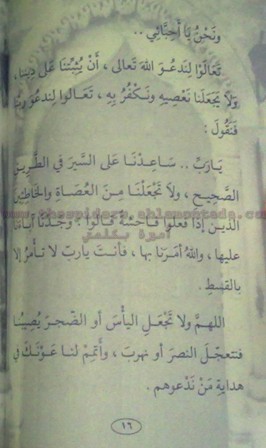 وَنَحْنُ يَا أَحِبَّائِي ..
تَعَالَوْا لِنَدْعُوَ اللهَ تَعَالى ، أَنْ يُثَبِّتَنَا عَلى دِينِهِ ،
وَلاَ يَجْعَلَنَا نَعْصِيهِ وَنَكْفُرُ بِهِ ، تَعَـالَوا لِنَدعُوَ رَبَّنَا
فَنَقُولَ :
يَارَبّ .. سَـاعِدْنَا عَلى السَّيرَ في الطَّرِيقِ
الصَّحِيحِ ، وَلاَ تَجْعَلْنَا مِنَ العُصَـاةِ وَالخَاطِئِينَ
الذينَ إذَا فَعلُوا فَـاحشَةً قَـالُوا : وَجَدنَا آباءَنَا
عليها ، وَاللهُ أمَرنَا بهَا ، فأنتَ ياربّ لا تأمُرُ إلا
بالقِسطِ .
اللهمَّ ولا تَجْعَلِ اليأْسَ أو الضَّجرَ يُصِيبُنا
فنتعجّلَ النصرَ أو نهربَ ، وأَتمِمْ لنـا عَوْنَكَ في
هِدايةِ مَنْ نَدْعوهم .
١٦